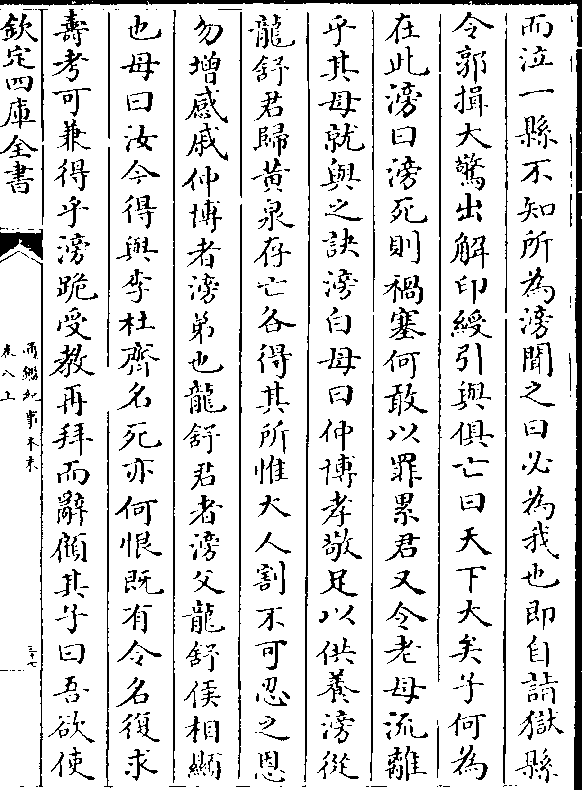 而泣一縣不知所為滂聞之曰必為我也即自詣獄縣
令郭揖大驚出解印綬引與俱亡曰天下大矣子何為
在此滂曰滂死則禍塞何敢以罪累君又令老母流離
乎其母就與之訣滂白母曰仲博孝敬足以供養滂從
龍舒君歸黃泉存亡各得其所惟大人割不可忍之恩
勿增感戚仲博者滂弟也龍舒君者滂父龍舒侯相顯
也母曰汝今得與李杜齊名死亦何恨既有令名復求
壽考可兼得乎滂跪受教再拜而辭顧其子曰吾欲使
欽定四庫全書
通鑑紀事本末
卷八上
三十七